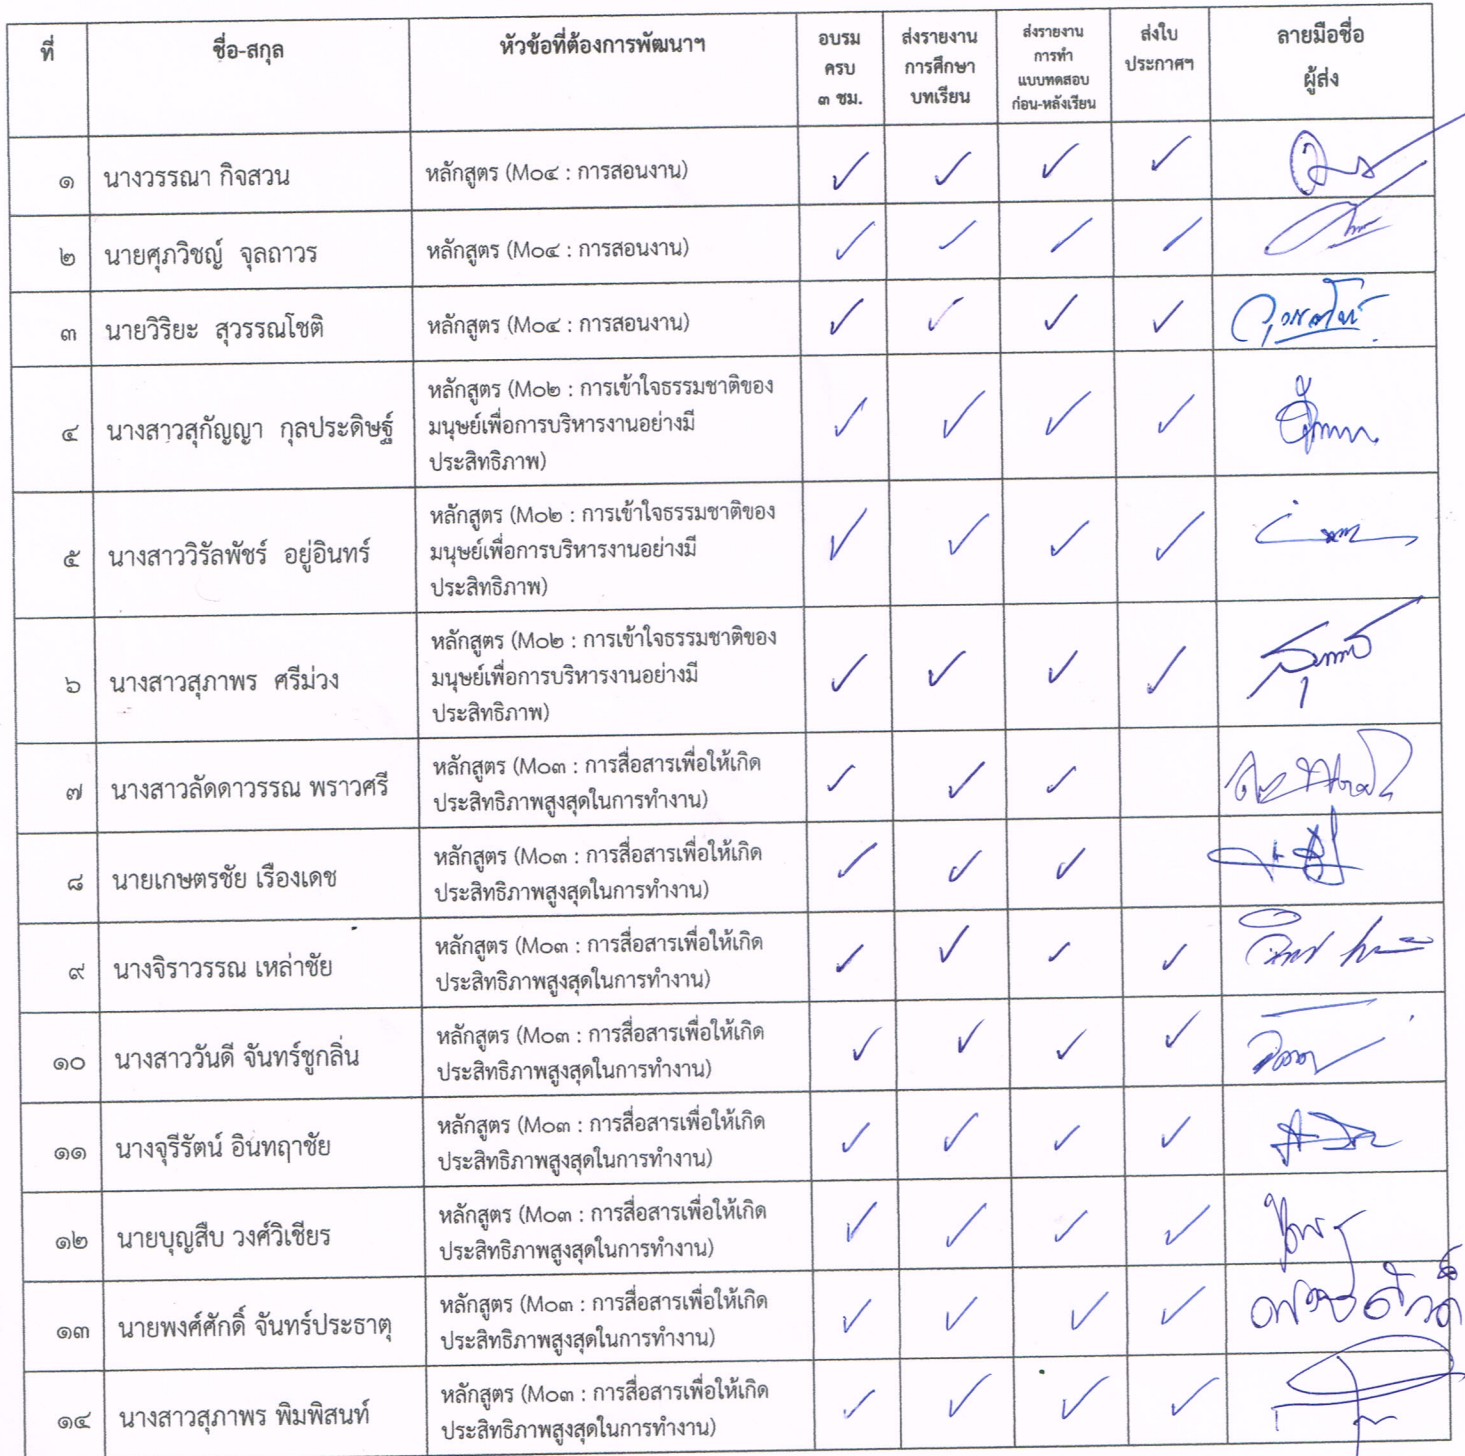 ที่ ชื่อ-สกุล หัวข้อที่ต้องการพัฒนาฯ อบรม ส่งรายงาน ส่งรายงาน ส่งใบ ลายมือชื่อ
ครบ การศึกษา การทำ ประกาศฯ ผู้ส่ง
๓ ชม. บทเรียน แบบทดสอบ
ก่อน-หลังเรียน
๑ นางวรรณา กิจสวน หลักสูตร (M๐๔ : การสอนงาน) ✓ ✓ ✓ ✓
๒ นายศุภวิชญ์ จุลถาวร หลักสูตร (M๐๔ : การสอนงาน) ✓ ✓ ✓ ✓
๓ นายวิริยะ สุวรรณโชติ หลักสูตร (M๐๔ : การสอนงาน) ✓ ✓ ✓ ✓
หลักสูตร (M๐๒ : การเข้าใจธรรมชาติของ
๔ นางสาวสุกัญญา กุลประดิษฐ์ มนุษย์เพื่อการบริหารงานอย่างมี ✓ ✓ ✓ ✓
ประสิทธิภาพ)
หลักสูตร (M๐๒ : การเข้าใจธรรมชาติของ
๕ นางสาววิรัลพัชร์ อยู่อินทร์ มนุษย์เพื่อการบริหารงานอย่างมี ✓ ✓ ✓ ✓
ประสิทธิภาพ)
หลักสูตร (M๐๒ : การเข้าใจธรรมชาติของ
๖ นางสาวสุภาพร ศรีม่วง มนุษย์เพื่อการบริหารงานอย่างมี ✓ ✓ ✓ ✓
ประสิทธิภาพ)
๗ นางสาวลัดดาวรรณ พราวศรี หลักสูตร (M๐๓ : การสื่อสารเพื่อให้เกิด ✓ ✓ ✓
ประสิทธิภาพสูงสุดในการทำงาน)
๘ นายเกษตรชัย เรืองเดช หลักสูตร (M๐๓ : การสื่อสารเพื่อให้เกิด ✓ ✓ ✓
ประสิทธิภาพสูงสุดในการทำงาน)
๙ นางจิราวรรณ เหล่าชัย หลักสูตร (M๐๓ : การสื่อสารเพื่อให้เกิด ✓ ✓ ✓ ✓
ประสิทธิภาพสูงสุดในการทำงาน)
๑๐ นางสาววันดี จันทร์ชูกลิ่น หลักสูตร (M๐๓ : การสื่อสารเพื่อให้เกิด ✓ ✓ ✓ ✓
ประสิทธิภาพสูงสุดในการทำงาน)
๑๑ นางจุรีรัตน์ อินทฤาชัย หลักสูตร (M๐๓ : การสื่อสารเพื่อให้เกิด ✓ ✓ ✓ ✓
ประสิทธิภาพสูงสุดในการทำงาน)
๑๒ นายบุญสืบ วงศ์วิเชียร หลักสูตร (M๐๓ : การสื่อสารเพื่อให้เกิด ✓ ✓ ✓ ✓
ประสิทธิภาพสูงสุดในการทำงาน)
๑๓ นายพงศ์ศักดิ์ จันทร์ประธาตุ หลักสูตร (M๐๓ : การสื่อสารเพื่อให้เกิด ✓ ✓ ✓ ✓
ประสิทธิภาพสูงสุดในการทำงาน)
๑๔ นางสาวสุภาพร พิมพิสนท์ หลักสูตร (M๐๓ : การสื่อสารเพื่อให้เกิด ✓ ✓ ✓ ✓
ประสิทธิภาพสูงสุดในการทำงาน)